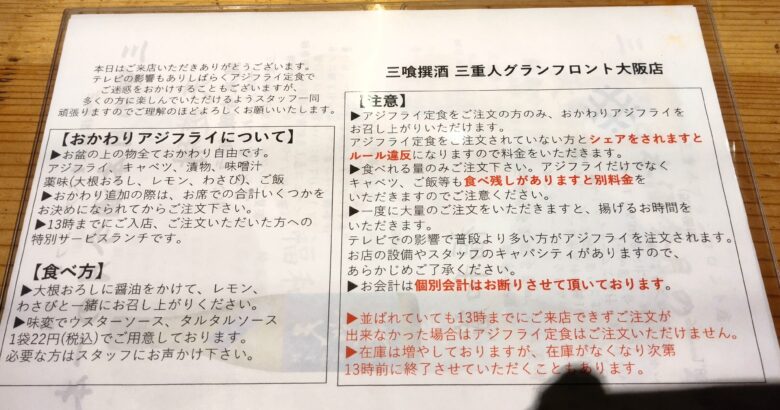 本日はご来店いただきありがとうございます。
テレビの影響もありしばらくアジフライ定食で
ご迷惑をおかけすることもございますが、
多くの方に楽しんでいただけるようスタッフ一同
頑張りますのでご理解のほどよろしくお願いいたします。
【おかわりアジフライについて】
▶お盆の上の物全ておかわり自由です。
アジフライ、キャベツ、漬物、味噌汁
薬味(大根おろし、レモン、わさび)、ご飯
▶おかわり追加の際は、お席での合計いくつかを
お決めになられてからご注文下さい。
▶13時までにご入店、ご注文いただいた方への
特別サービスランチです。
【食べ方】
▶大根おろしに醤油をかけて、レモン、
わさびと一緒にお召し上がりください。
▶味変でウスターソース、タルタルソース
1袋22円(税込)でご用意しております。
必要な方はスタッフにお声かけ下さい。
三喰撰酒 三重人グランフロント大阪店
【注意】
▶アジフライ定食をご注文の方のみ、おかわりアジフライを
お召し上がりいただけます。
アジフライ定食をご注文されていない方とシェアをされますと
ルール違反になりますので料金をいただきます。
▶食べれる量のみご注文下さい。アジフライだけでなく
キャベツ、ご飯等も食べ残しがありますと別料金を
いただきますのでご注意ください。
▶一度に大量のご注文をいただきますと、揚げるお時間を
いただきます。
テレビでの影響で普段より多い方がアジフライを注文されます。
お店の設備やスタッフのキャパシティがありますので、
あらかじめご了承ください。
▶お会計は個別会計はお断りさせて頂いております。
▶並ばれていても13時までにご来店できずご注文が
出来なかった場合はアジフライ定食はご注文いただけません。
▶在庫は増やしておりますが、在庫がなくなり次第
13時前に終了させていただくこともあります。